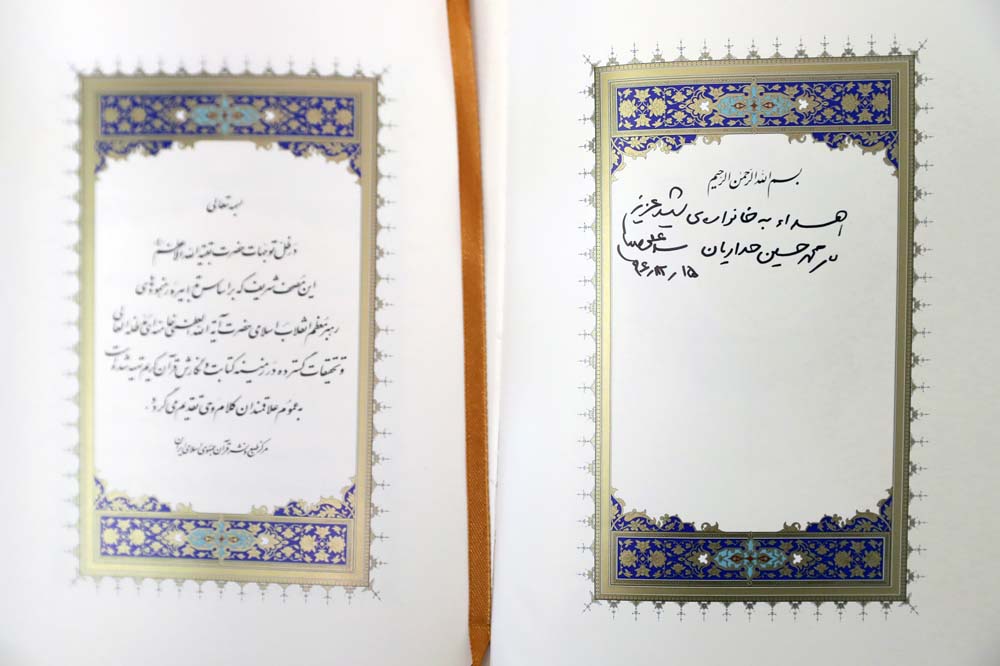 بسم الله الرحمن الرحیم
اهداء به خانواده‌ی شهید عزیز
محمد حسین حدادیان سید علی
۹۶/۱۲/۱۵
بسمه تعالی
در ظل توجهات حضرت بقیة الله الاعظم
این مصحف شریف که بر اساس تدابیر و رهنمودهای
رهبر معظم انقلاب اسلامی حضرت آیة الله العظمی خامنه‌ای مدظله العالی
و تحقیقات گسترده در زمینه کتابت و نگارش قرآن کریم تهیه شده است
به عموم علاقمندان کلام وحی تقدیم می‌گردد.
مرکز طبع و نشر قرآن جمهوری اسلامی ایران